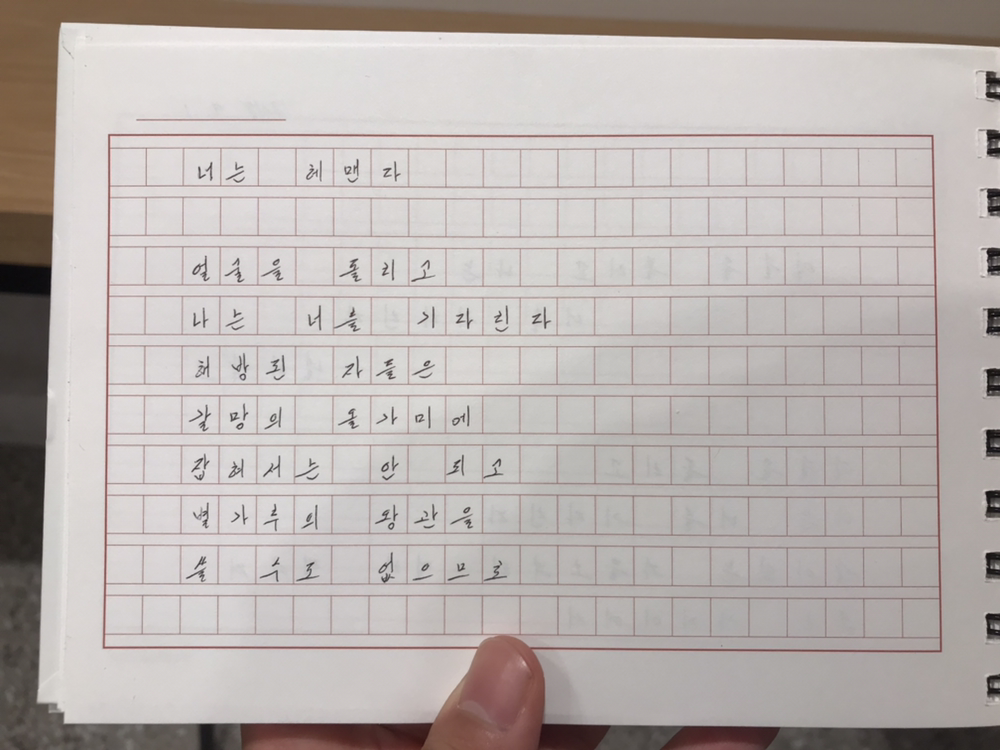 너는 헤맨다
얼굴을 돌리고
나는 너를 기다린다
해방된 자들은
갈망의 올가미에
잡혀서는 안 되고
별가루의 왕관을
쓸 수도 없으므로